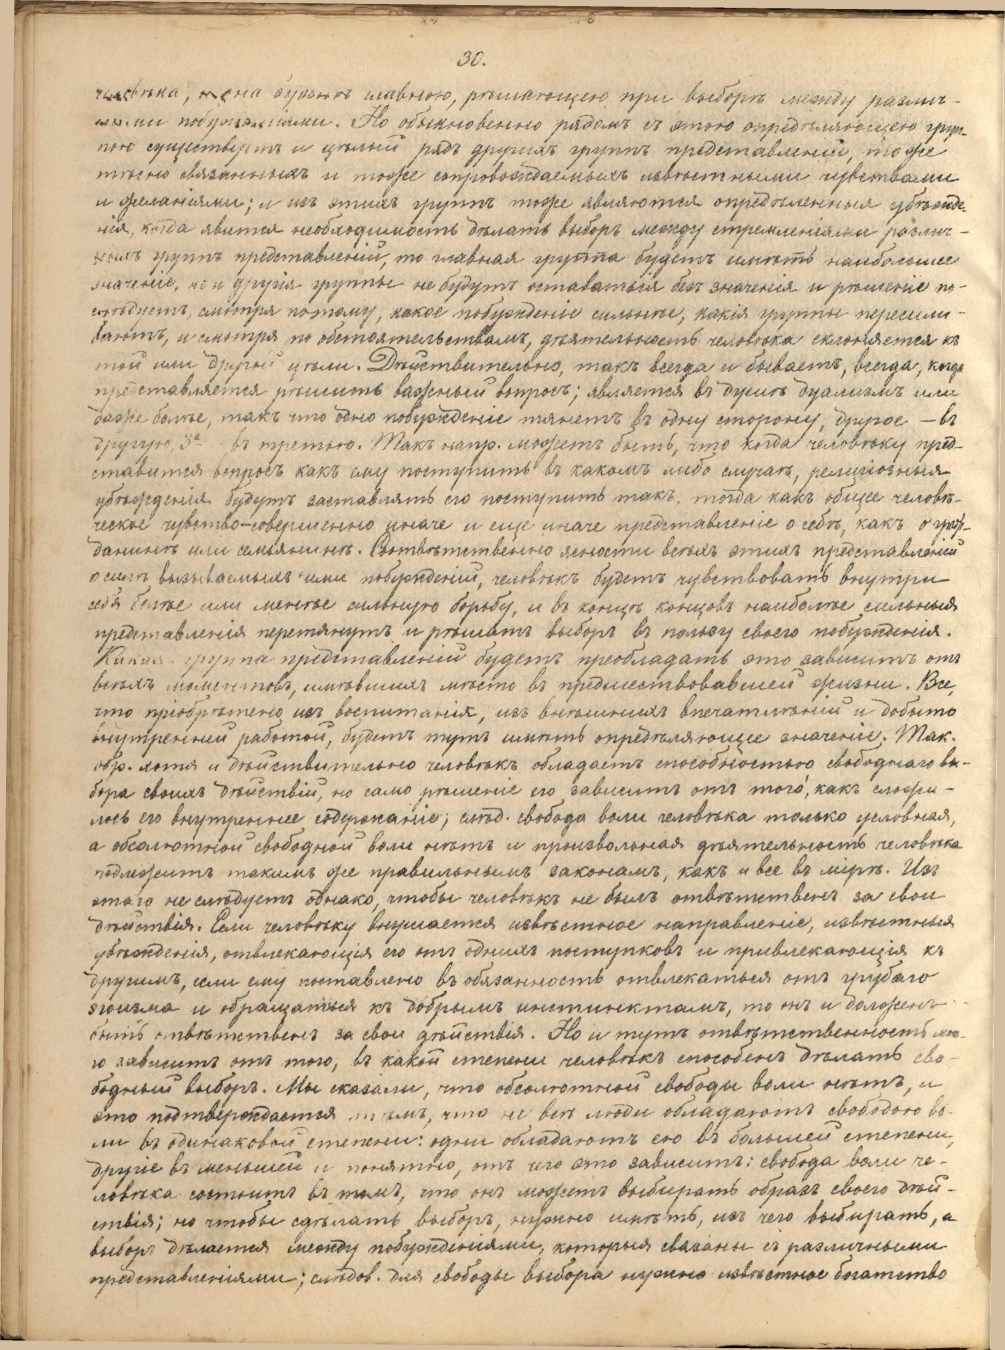 30.
человѣка, и она будетъ главною, рѣшающею при выборѣ между различ-
ными побужденіями. Но обыкновенно рядомъ съ этою опредѣляющею груп-
пою существуетъ и цѣлый рядъ другихъ группъ представленій, тоже
тѣсно связанныхъ и тоже сопровождаемыхъ извѣстными чувствами
и желаніями; и изъ этихъ группъ тоже являются опредѣленныя убѣжде-
нія, когда явится необходимость дѣлать выборъ между стремленіями различ-
ныхъ группъ представленій, то главная группа будетъ имѣть наибольшее
значеніе, но и другія группы не будутъ оставаться безъ значенія и рѣшеніе по-
слѣдуетъ, смотря потому, какое побужденіе сильнѣе, какія группы пересили-
ваютъ, и смотря по обстоятельствамъ, дѣятельность человѣка склоняется къ
той или другой цѣли. Дѣйствительно, такъ всегда и бываетъ, всегда, когда
представляется рѣшить важный вопросъ; является въ душѣ дуализмъ или
даже болѣе, такъ что одно побужденіе тянетъ въ одну сторону, другое — въ
другую, 3е въ третью. Такъ напр. можетъ быть, что когда человѣку пред-
ставится вопросъ какъ ему поступить въ какомъ либо случаѣ, религіозныя
убѣжденія будутъ заставлять его поступить такъ, тогда какъ общее человѣ-
ческое чувство-совершенно иначе и еще иначе представленіе о себѣ, какъ о граж-
данинѣ или семьянинѣ. Соотвѣтственно ясности всѣхъ этихъ представленій
и силѣ вызываемыхъ ими побужденій, человѣкъ будетъ чувствовать внутри
себя болѣе или менѣе сильную борьбу, и въ концѣ концовъ наиболѣе сильныя
представленія перетянутъ и рѣшатъ выборъ въ пользу своего побужденія.
Какая группа представленій будетъ преобладать это зависитъ отъ
всѣхъ моментовъ, имѣвшихъ мѣсто въ предшествовавшей жизни. Все,
что пріобрѣтено изъ воспитанія, изъ внѣшнихъ впечатлѣній и добыто
внутренней работой, будетъ тутъ имѣть опредѣляющее значеніе. Так.
обр. хотя и дѣйствительно человѣкъ обладаетъ способностью свободнаго вы-
бора своихъ дѣйствій, но само рѣшеніе его зависитъ отъ того, какъ сложи-
лось его внутреннее содержаніе; слѣд. свобода воли человѣка только условная,
а абсолютной свободной воли нѣтъ и произвольная дѣятельность человѣка
подлежитъ такимъ же правильнымъ законамъ, какъ и все въ мірѣ. Изъ
этого не слѣдуетъ однако, чтобы человѣкъ не былъ отвѣтственъ за свои
дѣйствія. Если человѣку внушается извѣстное направленіе, извѣстныя
убѣжденія, отвлекающія его отъ однихъ поступковъ и привлекающія къ
другимъ, если ему поставлено въ обязанность отвлекаться отъ грубаго
эгоизма и обращаться къ добрымъ инстинктамъ, то онъ и долженъ
быть отвѣтственъ за свои дѣйствія. Но и тутъ отвѣтственность
зависитъ отъ того, въ какой степени человѣкъ способенъ дѣлать сво-
бодный выборъ. Мы сказали, что абсолютной свободы воли нѣтъ, и
это подтверждается тѣмъ, что не всѣ люди обладаютъ свободою во-
ли въ одинаковой степени: одни обладаютъ ею въ большей степени,
другіе въ меньшей и понятно, отъ чего это зависитъ: свобода воли че-
ловѣка состоитъ въ томъ, что онъ можетъ выбирать образъ своего дѣй-
ствія; но чтобы сдѣлать выборъ, нужно имѣть, изъ чего выбирать, а
выборъ дѣлается между побужденіями, которыя связаны съ различными
представленіями; слѣдов. для свободы выбора нужно извѣстное богатство